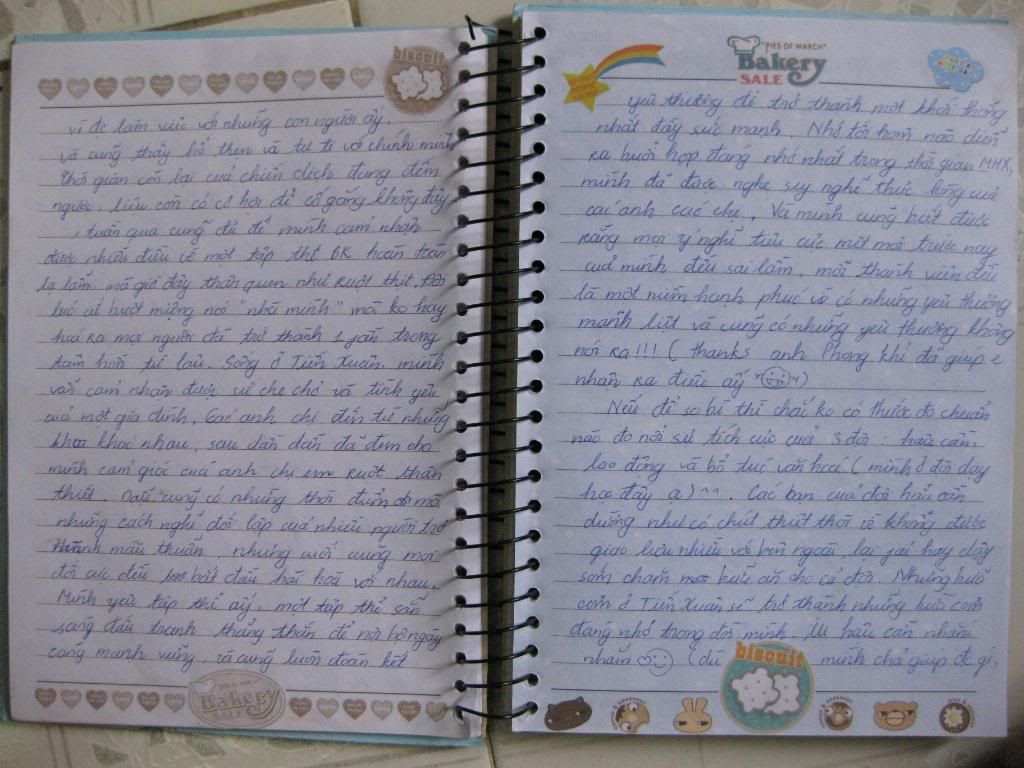 biscuit
vì đc làm việc với những con người ấy.
và cũng thấy hổ thẹn và tự ti với chính mình
thời gian còn lại của chiến dịch đang đếm
ngược. Liệu còn có cơ hội để cố gắng không đây
tuần qua cũng đủ để mình cảm nhận
được nhiều điều về một tập thể BK hoàn toàn
lạ lẫm mà giờ đây thân quen như ruột thịt. Đôi
lúc ai buột miệng nói "nhà mình" mà ko hay
hoá ra mọi người đã trở thành 1 gần trong
tâm hồn từ lâu. Sống ở Tiến Xuân, mình
vẫn cảm nhận được sự che chở và tình yêu
của một gia đình. Các anh chị đến từ những
khoa khác nhau, sau dần dần đã đem cho
mình cảm giác của anh chị em ruột thân
thiết. Dẫu cũng có những thời điểm mà
những cách nghĩ đối lập của nhiều người trở
thành mâu thuẫn, nhưng cuối cùng mọi
đối cực đều bắt đầu hài hoà với nhau.
Mình yêu tập thể ấy, một tập thể sẵn
sàng đấu tranh thẳng thắn để nội bộ ngày
càng mạnh vững, và cũng luôn đoàn kết
Bakery
SALE
"PIES OF MARCH"
Bakery
SALE
yêu thương để trở thành một khối thống
nhất đầy sức mạnh. Nhớ tối hôm nào diễn
ra buổi họp đáng nhớ nhất trong thời gian MHX,
mình đã được nghe suy nghĩ thực lòng của
các anh các chị. Và mình cũng biết được
rằng mọi ý nghĩ tiêu cực mệt mỏi trước nay
của mình đều sai lầm, mỗi thành viên đều
là một niềm hạnh phúc vì có những yêu thương
mãnh liệt và cũng có những yêu thương không
nói ra!!! (thanks anh Phong khi đã giúp e
nhận ra điều ấy)
Nếu để so bì thì chắc ko có thước đo chuẩn
nào đo nổi sự tích cực của 3 đội: hậu cần
lao động và bổ túc văn hoá (mình ở đội dạy
học đấy ạ) ^^. Các bạn của đội hậu cần
dường như có chút thiệt thòi vì không được
giao lưu nhiều với bên ngoài, lại phải hay dậy
sớm chăm bữa ăn cho cả đội. Nhưng bữa
cơm ở Tiến Xuân sẽ trở thành những bữa cơm
đáng nhớ trong đời mình. Iu hậu cần nhắm
nhắm (dù mình chả giúp đc gì,
biscuit